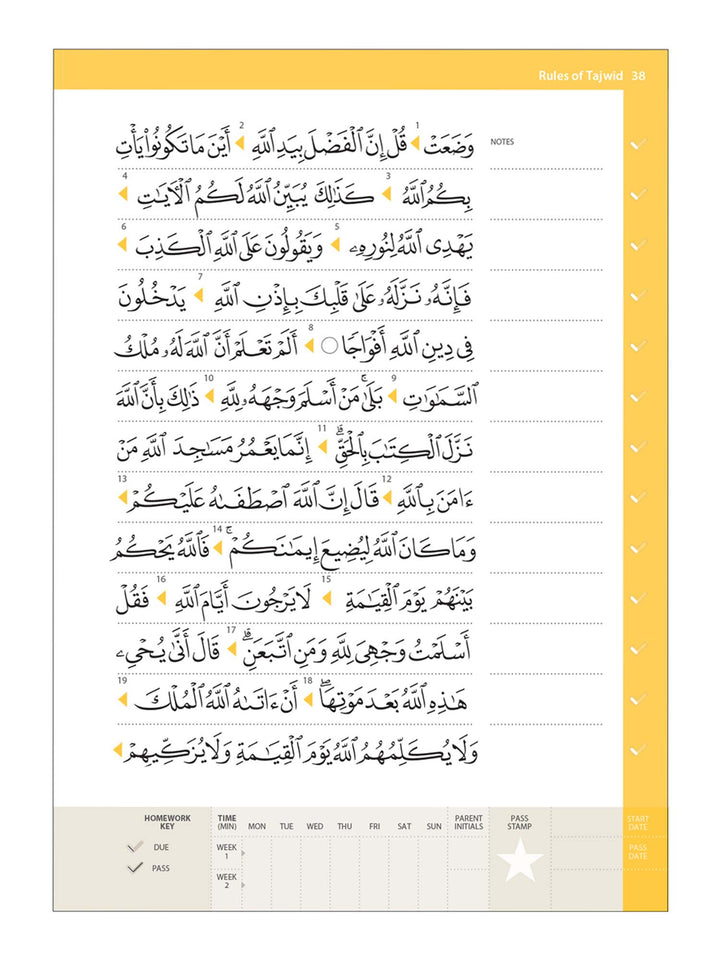 Rules of Tajwid 38
NOTES
1 2
وَضَعَتْ ◂ قُلْ إِنَّ ٱلْفَضْلَ بِيَدِ ٱللَّهِ ◂ أَيْنَ مَا تَكُونُوا۟ يَأْتِ
3 4
بِكُمُ ٱللَّهُ ◂ كَذَٰلِكَ يُبَيِّنُ ٱللَّهُ لَكُمُ ٱلْـَٔايَـٰتِ ◂
5 6
يَهْدِى ٱللَّهُ لِنُورِهِۦ ◂ وَيَقُولُونَ عَلَى ٱللَّهِ ٱلْكَذِبَ ◂
7
فَإِنَّهُۥ نَزَّلَهُۥ عَلَىٰ قَلْبِكَ بِإِذْنِ ٱللَّهِ ◂ يَدْخُلُونَ
8
فِى دِينِ ٱللَّهِ أَفْوَاجًا ○ ◂ أَلَمْ تَعْلَمْ أَنَّ ٱللَّهَ لَهُۥ مُلْكُ
9 10
ٱلسَّمَـٰوَٰتِ ◂ بَلَىٰ ۚ مَنْ أَسْلَمَ وَجْهَهُۥ لِلَّهِ ◂ ذَٰلِكَ بِأَنَّ ٱللَّهَ
11
نَزَّلَ ٱلْكِتَـٰبَ بِٱلْحَقِّ ۗ ◂ إِنَّمَا يَعْمُرُ مَسَـٰجِدَ ٱللَّهِ مَنْ
12 13
ءَامَنَ بِٱللَّهِ ◂ قَالَ إِنَّ ٱللَّهَ ٱصْطَفَىٰهُ عَلَيْكُمْ ◂
14
وَمَا كَانَ ٱللَّهُ لِيُضِيعَ إِيمَـٰنَكُمْ ۚ ◂ فَٱللَّهُ يَحْكُمُ
15 16
بَيْنَهُمْ يَوْمَ ٱلْقِيَـٰمَةِ ◂ لَا يَرْجُونَ أَيَّامَ ٱللَّهِ ◂ فَقُلْ
17
أَسْلَمْتُ وَجْهِىَ لِلَّهِ وَمَنِ ٱتَّبَعَنِ ۗ ◂ قَالَ أَنَّىٰ يُحْىِۦ
18 19
هَـٰذِهِ ٱللَّهُ بَعْدَ مَوْتِهَا ۖ ◂ أَنْ ءَاتَىٰهُ ٱللَّهُ ٱلْمُلْكَ ◂
وَلَا يُكَلِّمُهُمُ ٱللَّهُ يَوْمَ ٱلْقِيَـٰمَةِ وَلَا يُزَكِّيهِمْ ◂
HOMEWORK KEY
DUE
PASS
TIME (MIN) MON TUE WED THU FRI SAT SUN PARENT INITIALS PASS STAMP START DATE
WEEK 1 PASS DATE
WEEK 2